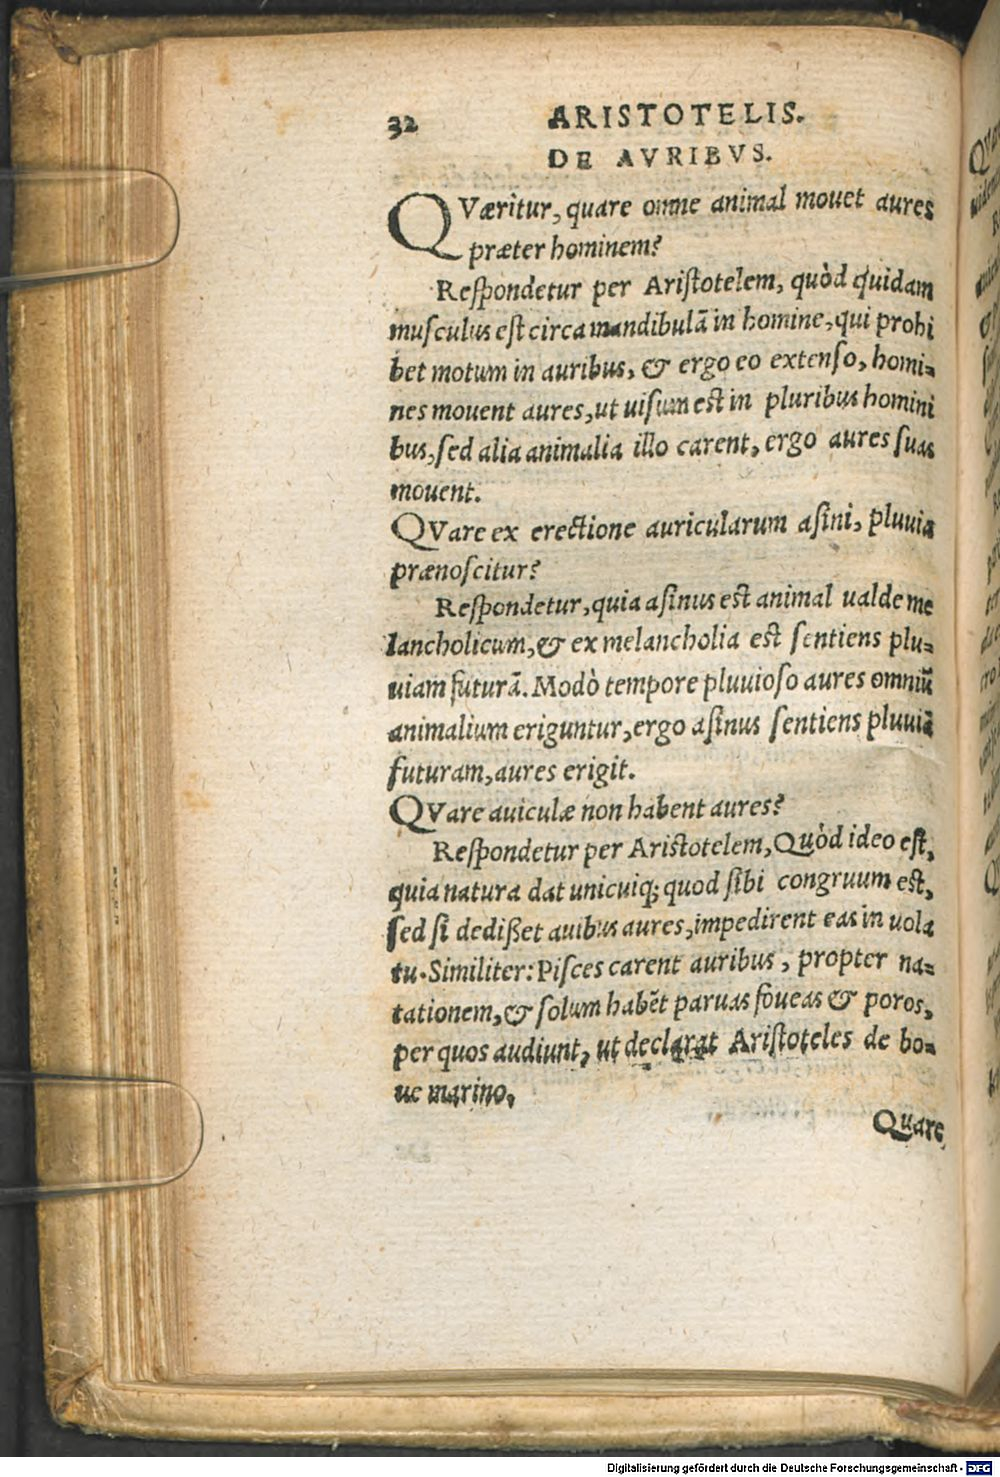 32 ARISTOTELIS.
DE AVRIBVS.
QVæritur, quare omne animal mouet aures
præter hominem?
Reſpondetur per Ariſtotelem, quòd quidam
muſculus eſt circa mandibulã in homine, qui prohi
bet motum in auribus, & ergo eo extenſo, homi=
nes mouent aures, ut uiſum eſt in pluribus homini
bus, ſed alia animalia illo carent, ergo aures ſuas
mouent.
QVare ex erectione auricularum aſini, pluuia
prænoſcitur?
Reſpondetur, quia aſinus eſt animal ualde me
lancholicum, & ex melancholia eſt ſentiens plu=
uiam futurã. Modò tempore pluuioſo aures omniũ
animalium eriguntur, ergo aſinus ſentiens pluuiã
futuram, aures erigit.
QVare auiculæ non habent aures?
Reſpondetur per Ariſtotelem, Quòd ideo eſt,
quia natura dat unicuiq; quod ſibi congruum eſt,
ſed ſi dedißet auibus aures, impedirent eas in uola
tu. Similiter: Piſces carent auribus, propter na=
tationem, & ſolum habẽt paruas foueas & poros,
per quos audiunt, ut declarat Ariſtoteles de bo=
ue marino.
Quare
Digitalisierung gefördert durch die Deutsche Forschungsgemeinschaft - DFG